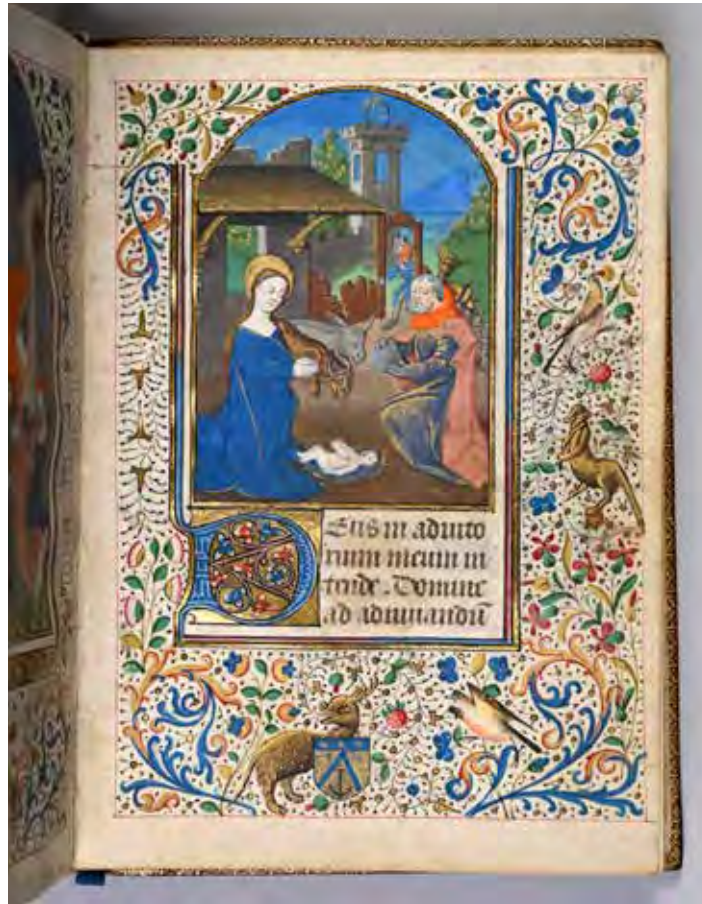 Deus in adiuto
rium meum in
tende. Domine
ad adiuuandū